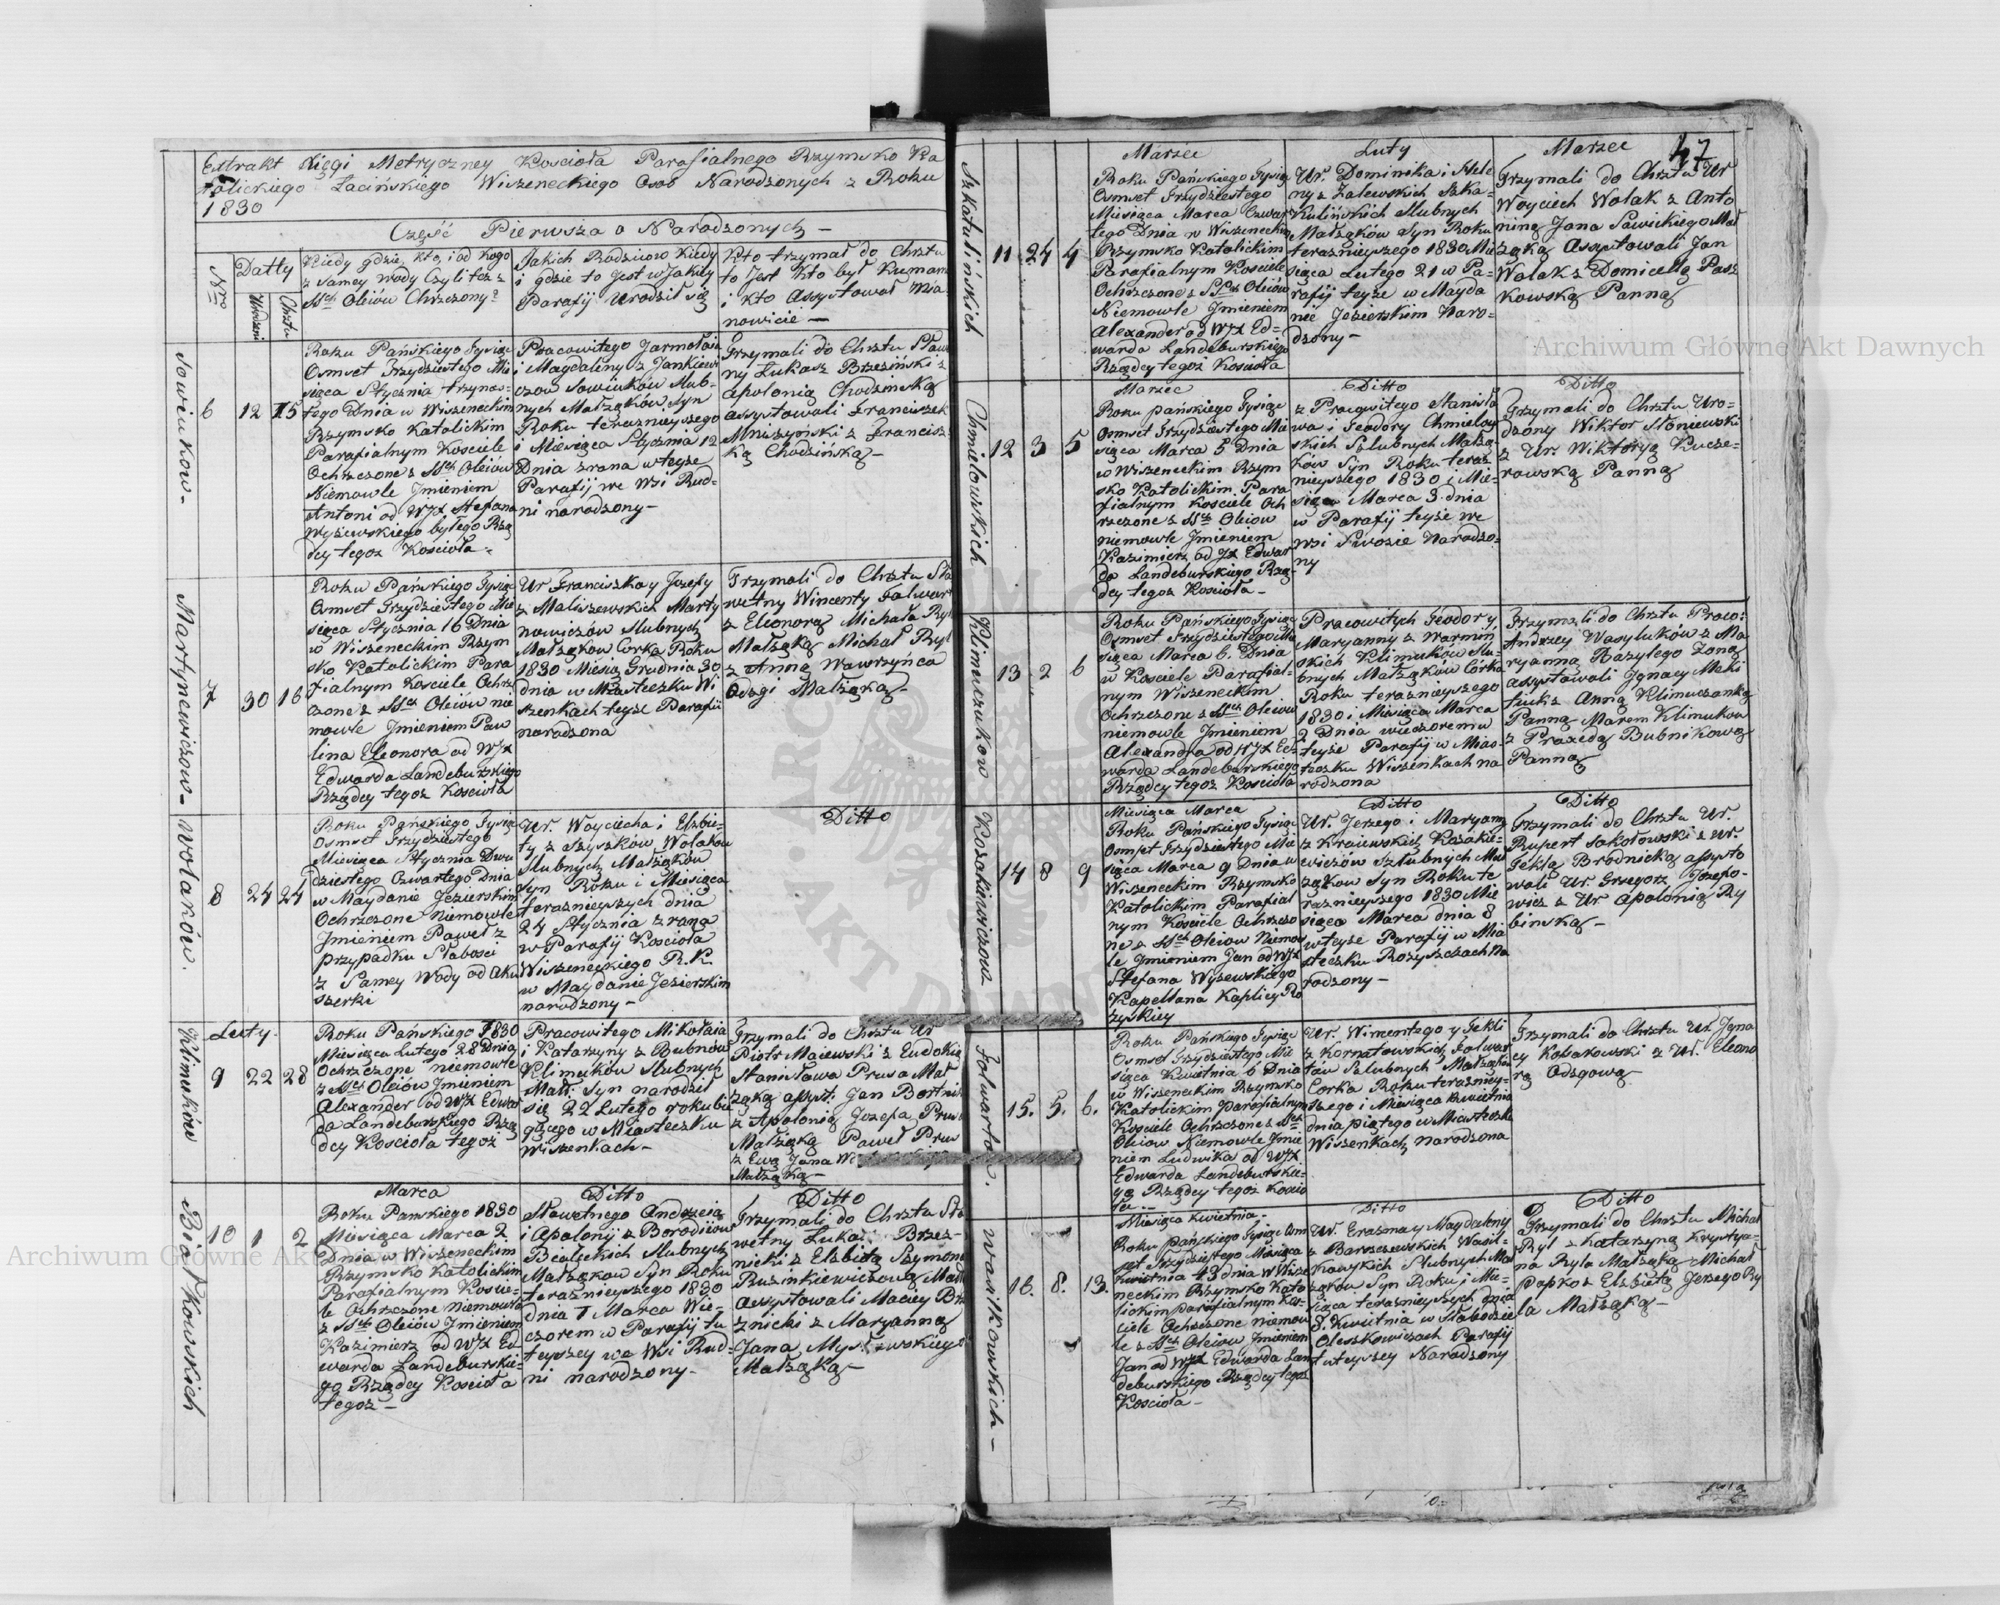 Extrakt Xięgi Metryczney Kościoła Parafialnego Rzymsko Ka
tolickiego Łacińskiego Wiszeneckiego Osób Narodzonych z Roku
1830
Część Pierwsza o Narodzonych —
Nro
Datty
Urodzeni
Chrztu
Kiedy gdzie, kto, i od kogo
z samey wody Czyli też z
SSch Oleiów Chrzczony?
Jakich Rodziców Kiedy
i gdzie to Jest w Jakiey
Parafij Urodził się
Kto trzymał do Chrztu
to Jest Kto był Kumami
i kto Assystował Mia-
nowicie —
Sowiukow -
6
12
15
Roku Pańskiego Tysiąc
Osmset Trzydziestego Mie
siąca Stycznia trzynas-
tego Dnia w Wiszeneckim
Rzymsko Katolickim
Parafialnym Kosciele
Ochrzczone z SSch Oleiów
Niemowle Jmieniem
Antoni od WJX Stefana
Wyżewskiego byłego Rzą
dcy tegoz Kościoła -
Pracowitego Jarmołaia
i Magdaleny z Jankiewi
czow Sowiuków Slub-
nych Małżąków Syn
Roku terazneyszego
i Miesiąca Stycznia 12
Dnia zrana w teyze
Parafij we Wsi Rud-
ni narodzony -
Trzymali do Chrztu Sław
ny Łukasz Brzeziński z
Apolonią Chodzińską
Assystowali Franciszek
Mniszyński z Francisz-
ką Chodzińską -
Martynewiczow -
7
30
16
Roku Pańskiego Tysiąc
Osmset Trzydziestego Mie
siąca Stycznia 16 Dnia
w Wiszeneckim Rzym
sko Katolickim Para
fialnym Kosciele Ochrz
czone z SSch Oleiów nie
mowle Jmieniem Paw
lina Eleonora od WJX
Edwarda Landeburskiego
Rządcy tegoz Kościoła
Ur Franciszka y Jozefy
z Maliszewskich Marty
nowiczów Slubnych
Małżąkow Corka Roku
1830 Miesią Grudnia 30
dnia w Miasteczku Wi
szenkach teyze Parafii
narodzona
Trzymali do Chrztu Sła
wetny Wincenty Falwar
z Eleonorą Michała Ryl
Małżąką Michał Ryl
z Anną Wawrzyńca
Odzgi Małżąką -
Wolaków.
8
24
24
Roku Pańskiego Tysiąc
Osmset Trzydziestego
Miesiąca Stycznia Dwu
dziestego Czwartego Dnia
w Maydanie Jezierskim
Ochrzczone Niemowle
Jmieniem Paweł z
przypadku Słabosci
z Samey Wody od Aku
szerki
Ur. Woyciecha i Elzbie-
ty z Szyszków Wolakow
Slubnych Małżąków
Syn Roku i Miesiąca
terazneyszych dnia
24 Stycznia z rana
w Parafij Kościoła
Wiszeneckiego R. K.
w Maydanie Jezierskim
narodzony -
Ditto
Klimuków
Luty.
9
22
28
Roku Pańskiego 1830
Miesiąca Lutego 28 Dnia
Ochrzczone niemowle
z SSch Oleiów Jmieniem
Alexander od WJX Edwar
da Landeburskiego Rzą
dcy Kościoła tegoż
Pracowitego Mikołaia
i Katarzyny z Bubnów
Klimuków Slubnych
Małż: Syn narodził
się 22 Lutego roku bie
gącego w Miasteczku
Wiszenkach -
Trzymali do Chrztu Ur
Piotr Maiewski z Eudokią
Stanisława Prusa Mał
żąką assyst: Jan Bortnik
z Apolonią Jozefa Prus
Małżąką Paweł Prus
z Ewą Jana
Małżąką -
Białkowskich
10
1
2
Marca
Roku Pańskiego 1830
Miesiąca Marca 2
Dnia w Wiszeneckim
Rzymsko Katolickim
Parafialnym Koscie-
le Ochrzczone niemowle
z SSch Oleiów Jmieniem
Kazimierz od WJX Ed
warda Landeburskie-
go Rządcy Kosciola
tegoż -
Ditto
Sławetnego Andrzeia
i Apolonij z Borodiiow
Białeckich Slubnych
Małżąkow Syn Roku
terazneyszego 1830
dnia 1 Marca Wie-
czorem w Parafij tu
teyszey we Wsi Rud-
ni narodzony -
Ditto
Trzymali do Chrztu Sła
wetny Łukasz Brzez-
nicki z Elzbietą Szymona
Ruzinkiewiczową Małż
Assystowali Maciey Brz
znicki z Maryanną
Jana Mysłzewskiego
Małżąką -
47
Szkatulińskich
11
24
4
Marzec
Roku Pańskiego Tysiąc
Osmset Trzydziestego
Miesiąca Marca Czwar
tego Dnia w Wiszeneckim
Rzymsko Katolickim
Parafialnym Kosciele
Ochrzczone z SSch Oleiów
Niemowle Jmieniem
Alexander od WJX Ed-
warda Landeburskiego
Rządcy tegoz Kościoła
Luty
Ur. Dominika i Hele
ny z Zalewskich Szka-
tulińskich Slubnych
Małżąków Syn Roku
terazneyszego 1830 Mie
siąca Lutego 21 w Pa-
rafij teyze w Mayda
nie Jezierskim Naro-
dzony -
Marzec
Trzymali do Chrztu Ur
Woyciech Wolak z Anto
niną Jana Sawickiego Mał
żąką Assystowali Jan
Wolak z Domicellą Pasz
kowską Panną
Chmielowskich
12
3
5
Marzec
Roku pańskiego Tysiąc
Osmset Trzydziestego Mie
siąca Marca 5 Dnia
w Wiszeneckim Rzym
sko Katolickim Para
fialnym Kosciele Och
rzczone z SSch Oleiow
niemowle Jmieniem
Kazimierz od JX Edwar
da Landeburskiego Rzą-
dcy tegoz Kosciola -
Ditto
z Pracowitego Stanisła
wa i Teodory Chmielow
skich Szlubnych Małżą-
ków Syn Roku teraz
nieyszego 1830 i Mie-
siąca Marca 3 dnia
w Parafij teyże we
wsi Swozie Narodzo-
ny
Ditto
Trzymali do Chrztu Uro-
dzony Wiktor Słoniewski
z Ur. Wiktoryą Kucze-
rowską Panną
Klimczukow
13
2
6
Roku Pańskiego Tysiąc
Osmset Trzydziestego Mie
siąca Marca 6. Dnia
w Kosciele Parafial-
nym Wiszeneckim
Ochrzczone z SSch Oleiow
niemowle Jmieniem
Alexandra od WJX Ed-
warda Landeburskiego
Rządcy tegoz Kosciola
Pracowitych Teodory
Maryanny z Warmiń
skich Klimuków Slu-
bnych Małżąków Córka
Roku terazneyszego
1830 i Miesiąca Marca
2 Dnia wieczorem w
teyze Parafij w Mias-
teczku Wiszenkach na
rodzona
Trzymali do Chrztu Praco:
Andrzey Wasyluków z Ma
ryanną Bazylego Zoną
Assystowali Jgnacy Miki
tiuk z Anną Klimuczanką
Panną Marem Klimukow
z Praxedą Bubnikową
Panną
Kozakiewiczow
14
8
9
Miesiąca Marca
Roku Pańskiego Tysiąc
Osmset Trzydziestego Mie
siąca Marca 9 Dnia w
Wiszeneckim Rzymsko
Katolickim Parafial
nym Kosciele Ochrzczo
ne z SSch Oleiow Niemow
le Jmieniem Jan od WJX
Stefana Wyżewskiego
Kapellana Kaplicy Ro
żyskiey
Ditto
Ur. Jerzego i Maryanny
z Kraiewskich Kozakie-
wiczów Szlubnych Mał
żąkow Syn Roku te
raznieyszego 1830 Mie
siąca Marca dnia 8
w teyze Parafij w Mia
steczku Rozyszczach Na
rodzony -
Ditto
Trzymali do Chrztu Ur.
Rupert Sokołowski z Ur.
Teklą Brodnicką assysto
wali Ur. Grzegorz Jozefo-
wicz z Ur Apolonią Ry
bińską -
Folwarkow.
15.
5.
6.
Roku Pańskiego Tysiąc
Osmset Trzydziestego Mie
siąca Kwietnia 6 Dnia
w Wiszeneckim Rzymsko
Katolickim parafialnym
Kosciele Ochrzczone z SSch
Oleiow Niemowle Jmie
niem Ludwika od WJX
Edwarda Landeburskie-
go Rządcy tegoz Koscio
ła -
Ur. Wincentego y Tekli
z Kornatowskich Falwar
kow Szlubnych Małżąków
Corka Roku terazney-
szego i Miesiąca Kwietnia
dnia piątego w Miasteczku
Wiszenkach narodzona
Trzymali do Chrztu Ur. Jgna
cy Kobakowski z Ur. Eleono
rą Odzgową
Wasilkowskich -
16.
8.
13.
Miesiąca Kwietnia -
Roku pańskiego Tysiąc Osm
set Trzydziestego Miesiąca
Kwietnia 13 dnia w Wisze
neckim Rzymsko Kato
lickim parafialnym Kos-
ciele Ochrzczone niemow
le z SSch Oleiow Jmieniem
Jan od WJX Edwarda Lan
deburskiego Rządcy tegoz
Kościoła -
Ditto
Ur. Erazma y Magdaleny
z Barszczewskich Wasil-
kowskich Slubnych Mał
żąków Syn Roku i Mie-
siąca terazneyszych dnia
8. Kwietnia w Słobodzie
Oleszkowiczach Parafij
tuteyszey Narodzony
Ditto
Trzymali do Chrztu Michał
Ryl z Katarzyną Krystya-
na Ryla Małżąką Michał
Papko z Elzbietą Jerzego Ry
la Małżąką -
Archiwum Główne Akt Dawnych
Archiwum Główne Akt Dawnych